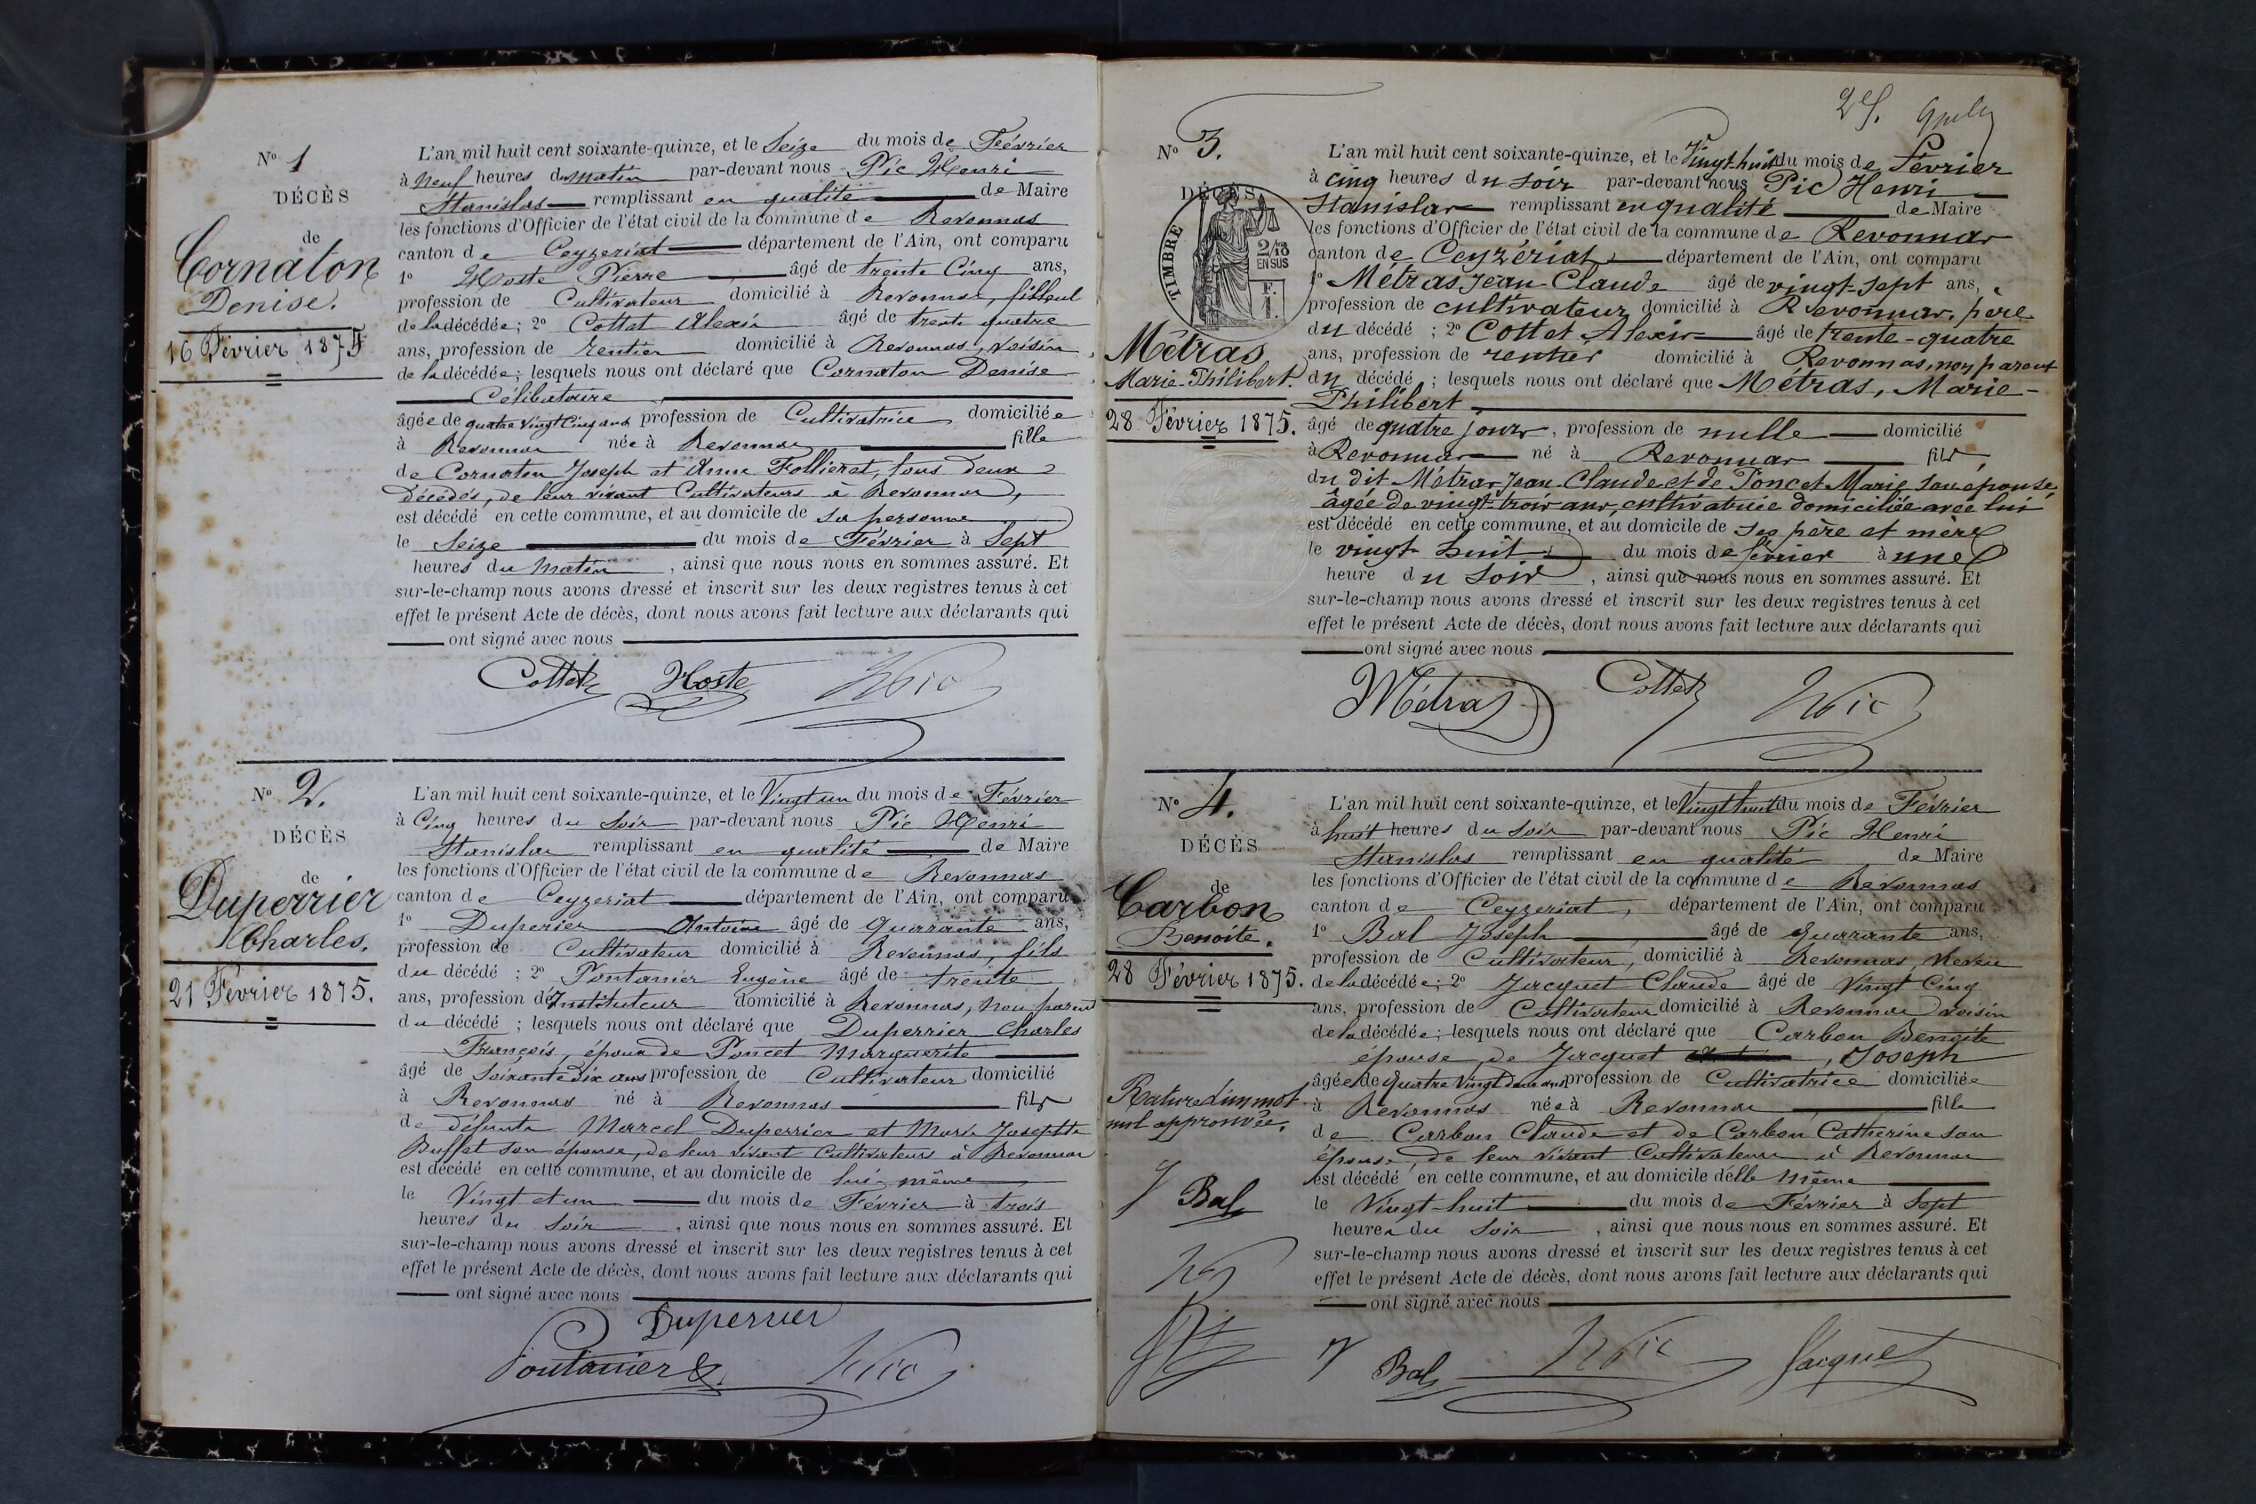 N° 1
DÉCÈS
de
Cornaton
Denise.
16 Février 1875
L'an mil huit cent soixante-quinze, et le Seize du mois de Février
à Neuf heures du matin par-devant nous Pic Henri
Stanislas remplissant en qualité de Maire
les fonctions d'Officier de l'état civil de la commune de Revonnas
canton de Ceyzeriat département de l'Ain, ont comparu
1° Hoste Pierre âgé de trente Cinq ans,
profession de Cultivateur domicilié à Revonnas, filleul
de la décédée; 2° Cottet Alexis âgé de trente quatre
ans, profession de rentier domicilié à Revonnas, voisin
de la décédée; lesquels nous ont déclaré que Cornaton Denise
Célibataire
âgée de quatre vingt Cinq ans profession de Cultivatrice domiciliée
à Revonnas née à Revonnas fille
de Cornaton Joseph et Anne Follieret, tous deux
Décédés, de leur vivant Cultivateurs à Revonnas,
est décédé en cette commune, et au domicile de sa personne
le Seize du mois de Février à Sept
heures du Matin, ainsi que nous nous en sommes assuré. Et
sur-le-champ nous avons dressé et inscrit sur les deux registres tenus à cet
effet le présent Acte de décès, dont nous avons fait lecture aux déclarants qui
ont signé avec nous
Cottet Hoste HPic
N° 2.
DÉCÈS
de
Duperrier
Charles.
21 Février 1875.
L'an mil huit cent soixante-quinze, et le Vingt un du mois de Février
à Cinq heures du Soir par-devant nous Pic Henri
Stanislas remplissant en qualité de Maire
les fonctions d'Officier de l'état civil de la commune de Revonnas
canton de Ceyzeriat département de l'Ain, ont comparu
1° Duperier Antoine âgé de Quarante ans,
profession de Cultivateur domicilié à Revonnas, fils
du décédé; 2° Pontanier Eugène âgé de trente
ans, profession de Instituteur domicilié à Revonnas, non parent
du décédé; lesquels nous ont déclaré que Duperrier Charles
François, époux de Poncet Marguerite
âgé de Soixante dix ans profession de Cultivateur domicilié
à Revonnas né à Revonnas fils
de défunts Marcel Duperrier et Marie Josephte
Buffet son épouse, de leur vivant Cultivateurs à Revonnas
est décédé en cette commune, et au domicile de lui-même
le Vingt et un du mois de Février à trois
heures du Soir, ainsi que nous nous en sommes assuré. Et
sur-le-champ nous avons dressé et inscrit sur les deux registres tenus à cet
effet le présent Acte de décès, dont nous avons fait lecture aux déclarants qui
ont signé avec nous
Duperrier
Pontanier HPic
N° 3.
DÉCÈS
TIMBRE
2/10
EN SUS
F.
1.
Métras
Marie-Philibert.
28 Février 1875.
L'an mil huit cent soixante-quinze, et le Vingt-huit du mois de Février
à cinq heures du soir par-devant nous Pic Henri
Stanislas remplissant en qualité de Maire
les fonctions d'Officier de l'état civil de la commune de Revonnas
canton de Ceyzériat département de l'Ain, ont comparu
1° Métras Jean Claude âgé de vingt-sept ans,
profession de cultivateur domicilié à Revonnas, père
du décédé; 2° Cottet Alexis âgé de trente-quatre
ans, profession de rentier domicilié à Revonnas, non parent
du décédé; lesquels nous ont déclaré que Métras, Marie-
Philibert
âgé de quatre jours, profession de nulle domicilié
à Revonnas né à Revonnas fils
du dit Métras Jean-Claude et de Poncet Marie son épouse,
âgée de vingt-trois ans, cultivatrice domiciliée avec lui
est décédé en cette commune, et au domicile de ses père et mère
le vingt huit du mois de février à une
heure du soir, ainsi que nous nous en sommes assuré. Et
sur-le-champ nous avons dressé et inscrit sur les deux registres tenus à cet
effet le présent Acte de décès, dont nous avons fait lecture aux déclarants qui
ont signé avec nous
Métras Cottet HPic
N° 4.
DÉCÈS
de
Carbon
Benoite.
28 Février 1875.
Rature d'un mot
mot approuvée.
J Bal
L'an mil huit cent soixante-quinze, et le Vingt huit du mois de Février
à huit heures du Soir par-devant nous Pic Henri
Stanislas remplissant en qualité de Maire
les fonctions d'Officier de l'état civil de la commune de Revonnas
canton de Ceyzeriat, département de l'Ain, ont comparu
1° Bal Joseph âgé de Quarante ans,
profession de Cultivateur, domicilié à Revonnas, Neveu
de la décédée; 2° Jacquet Claude âgé de Vingt Cinq
ans, profession de Cultivateur domicilié à Revonnas voisin
de la décédée; lesquels nous ont déclaré que Carbon Benoite
épouse de Jacquet, Joseph
âgée de quatre Vingt Deux ans profession de Cultivatrice domiciliée
à Revonnas née à Revonnas fille
de Carbon Claude et de Carbon Catherine son
épouse, de leur vivant Cultivateurs à Revonnas
est décédé en cette commune, et au domicile d'elle même
le Vingt-huit du mois de Février à Sept
heures du Soir, ainsi que nous nous en sommes assuré. Et
sur-le-champ nous avons dressé et inscrit sur les deux registres tenus à cet
effet le présent Acte de décès, dont nous avons fait lecture aux déclarants qui
ont signé avec nous
J Bal HPic Jacquet